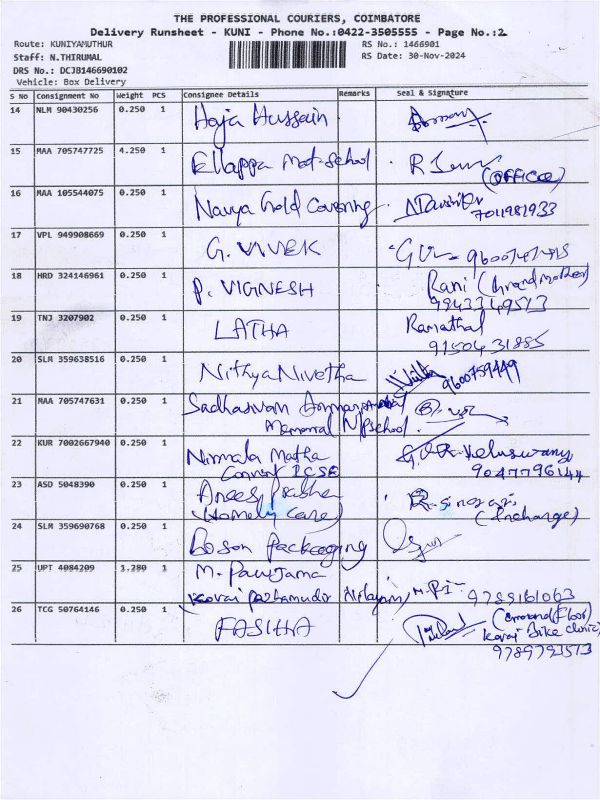 THE PROFESSIONAL COURIERS, COIMBATORE
Delivery Runsheet - KUNI - Phone No.:0422-3505555 - Page No.:2
Route: KUNIYAMUTHUR
RS No.: 1466901
Staff: N.THIRUMAL
RS Date: 30-Nov-2024
DRS No.: DCJB146690102
Vehicle: Box Delivery
S No Consignment No Weight PCS Consignee Details Remarks Seal & Signature
14 NLM 90430256 0.250 1 Haja Hussain
15 MAA 705747725 4.250 1 Ellappa Mat-School
(OFFICE)
16 MAA 105544075 0.250 1 Navya Gold Covering
7011981933
17 VPL 949908669 0.250 1 G. VIVEK
18 HRD 324146961 0.250 1 P. VIGNESH Rani (Grand mother)
9943349513
19 TNJ 3207902 0.250 1 LATHA Ramathal
9150431885
20 SLM 359638516 0.250 1 Nithya Nivetha 9600759449
21 MAA 705747631 0.250 1 Sadhasivam
Memorial N/P School
22 KUR 7002667940 0.250 1 Nirmala Matha Veluswamy
Convent ICSE 9047796144
23 ASD 5048390 0.250 1 Anees
(Homely Care) (Incharge)
24 SLM 359690768 0.250 1 Boson Packaging
25 UPT 4084209 1.280 1 M.
Kovai Pazhamudir Nilayam 9789161063
26 TCG 50764146 0.250 1 FASIHA (Ground Floor)
Kovai Bike Clinic
9789793513